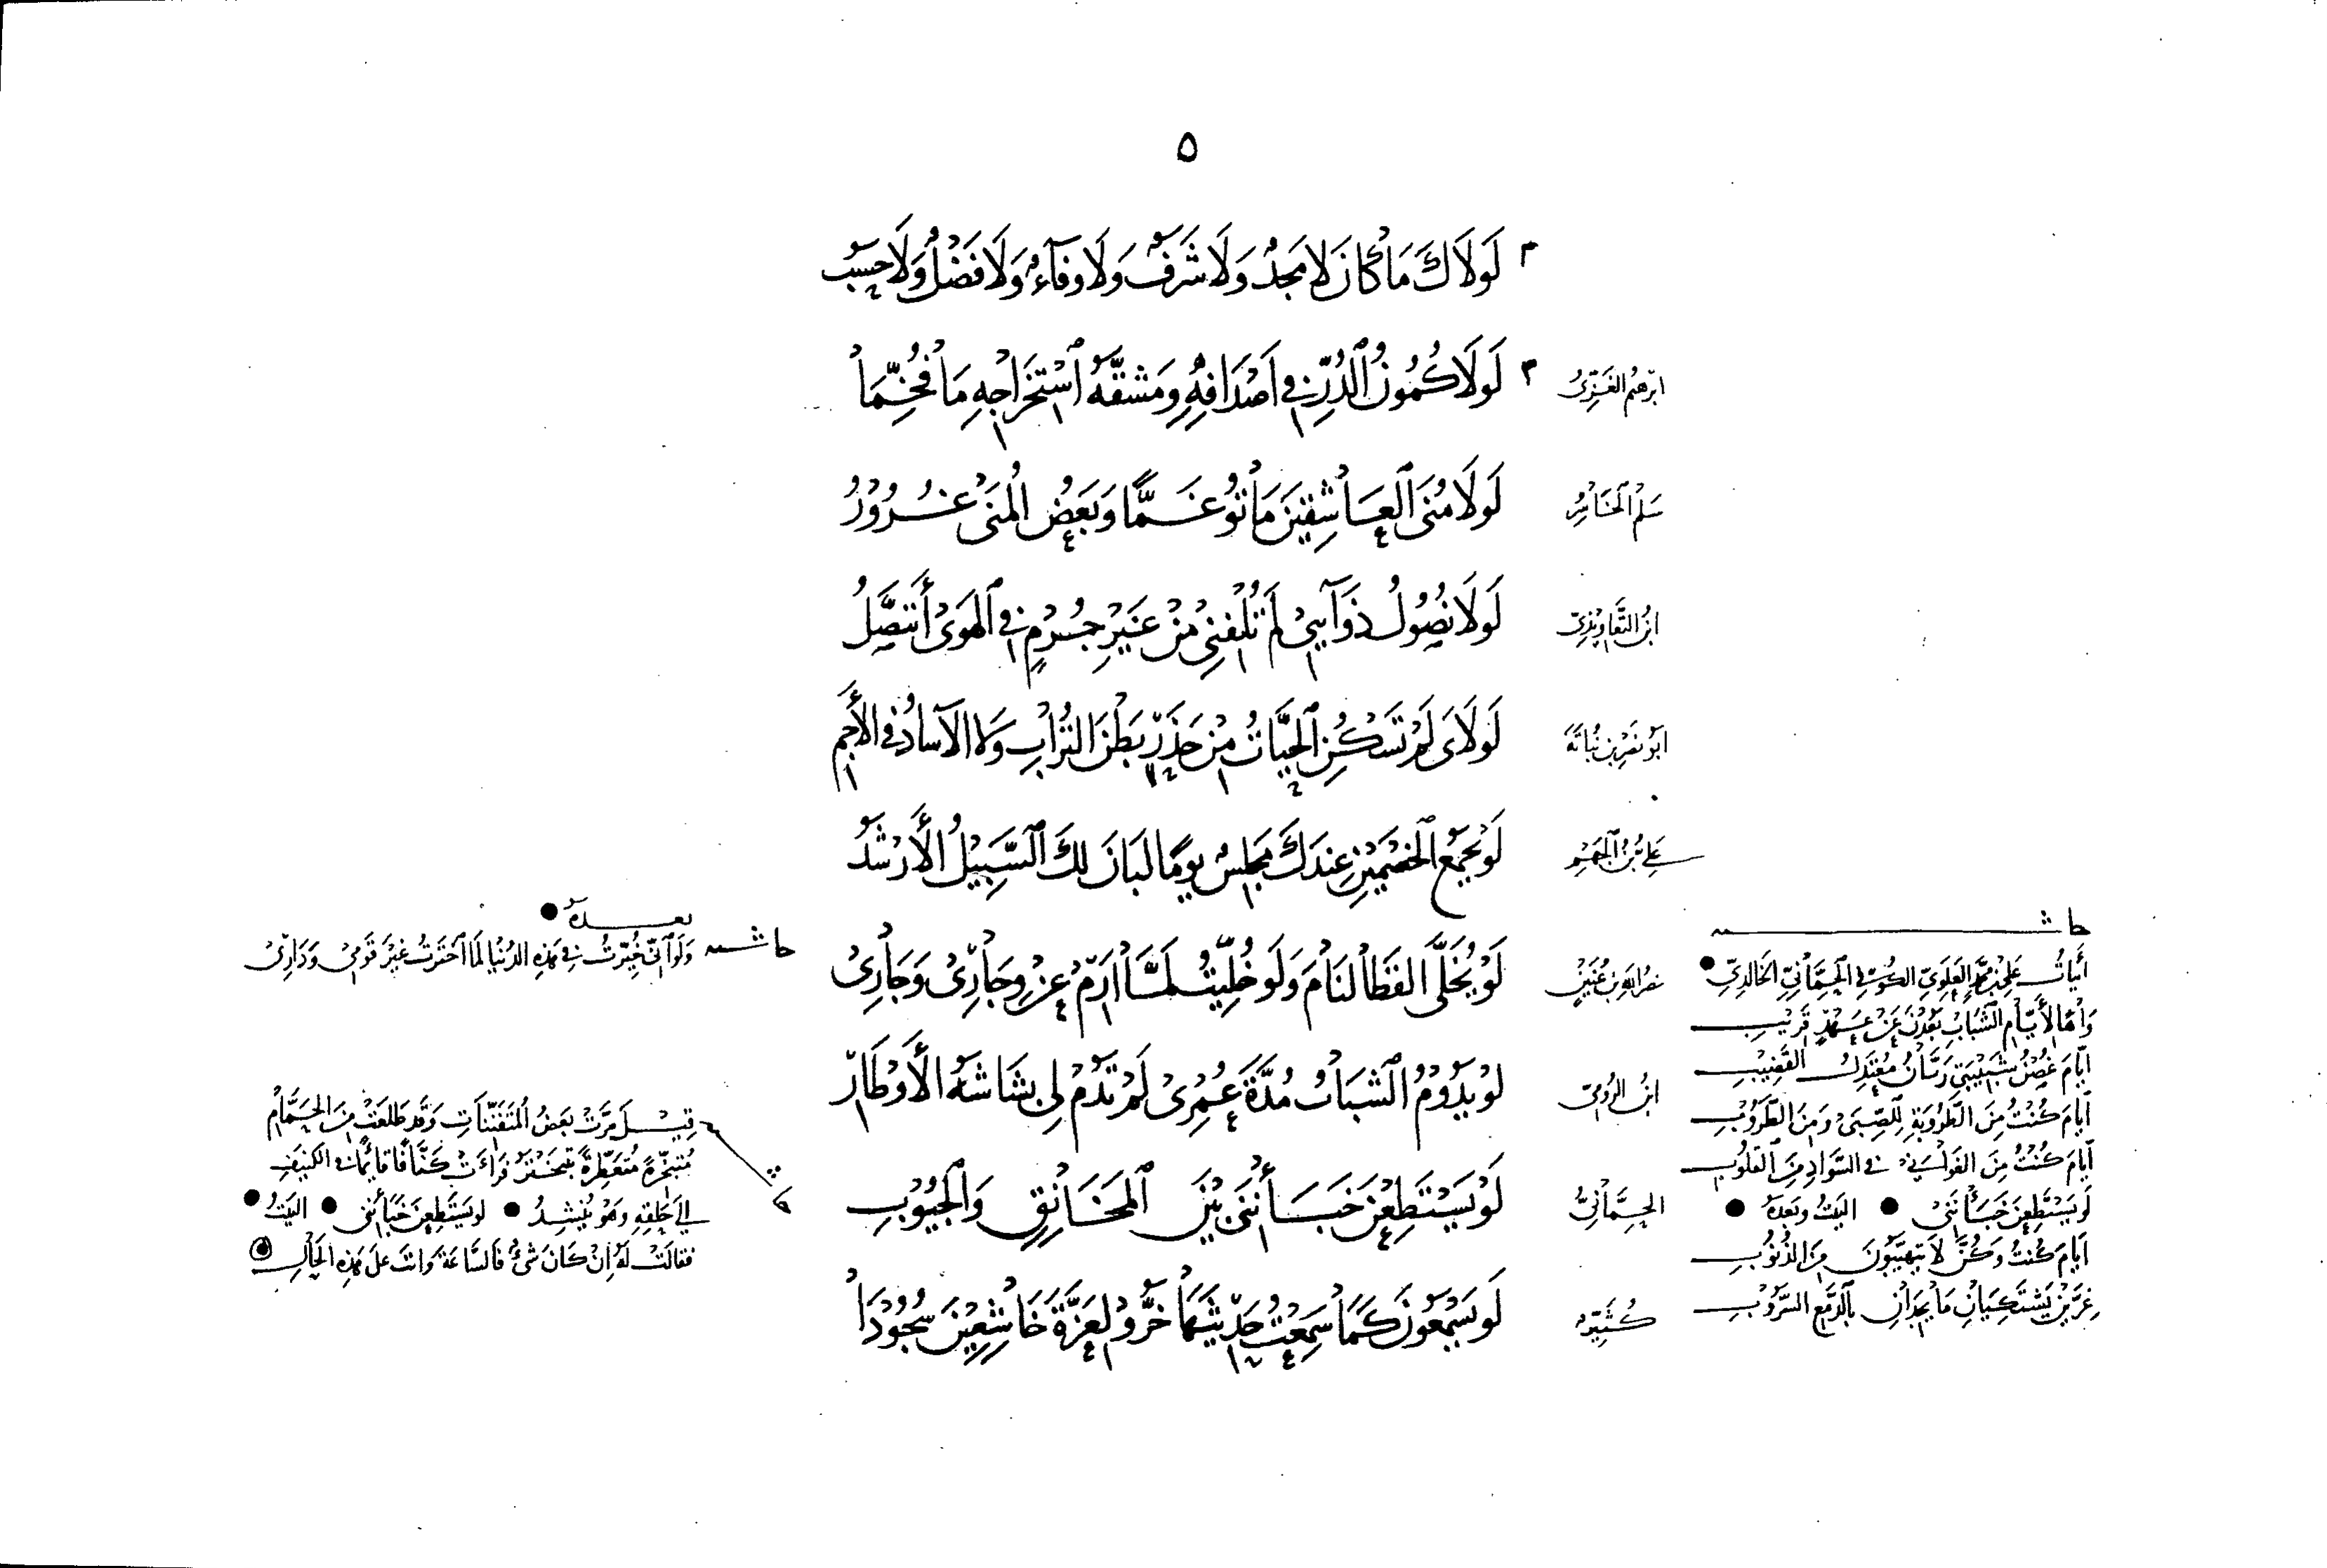 ٥
لَوْلَاكَ مَا كَانَ لَا مَجْدٌ وَلَا شَرَفٌ وَلَا وَفَاءٌ وَلَا فَضْلٌ وَلَا حَسَبُ
ابرهيم الغَزِّيُّ
لَوْلَا كُمُونُ الدُّرِّ فِي أَصْدَافِهِ وَمَشَقَّةُ اسْتِخْرَاجِهِ مَا فُخِّمَا
سَلْمُ الْخَاسِرُ
لَوْلَا مُنَى الْعَاشِقِينَ مَاتُوا غَمًّا وَبَعْضُ الْمُنَى غُرُورُ
ابْنُ التَّعَاوِيذِيّ
لَوْلَا نُصُولُ ذَوَائِبِي لَمْ تُلْفِنِي مِنْ غَيْرِ جُرْمٍ فِي الْهَوَى أَتَنَصَّلُ
أبُو نَصْرِ بْنِ نُبَاتَةَ
لَوْلَايَ لَمْ تَسْكُنِ الْحَيَّاتُ مِنْ حَذَرٍ بَطْنَ التُّرَابِ وَلَا الْآسَادُ فِي الْأَجَمِ
عَلِيُّ بْنُ الْجَهْمِ
لَوْ يَجْمَعُ الْخَصْمَيْنِ عِنْدَكَ مَجْلِسٌ يَوْمًا لَبَانَ لَكَ السَّبِيلُ الْأَرْشَدُ
نصر الله بن عُنَيْنٍ
لَوْ يُخَلَّى الْقَطَا لَنَامَ وَلَوْ خُلِّيتُ لَمَّا أَرِمْ عَنْ وَجَارِي وَجَارِي
ابْنُ الرُّومِيّ
لَوْ يَدُومُ الشَّبَابُ مُدَّةَ عُمْرِي لَمْ تَدُمْ لِي بَشَاشَةُ الْأَوْطَارْ
الحِمَّانِيُّ
لَوْ يَسْتَطِعْنَ خَبَأْنَنِي بَيْنَ الْمَخَانِقِ وَالْجُيُوبِ
كُثَيِّرٌ
لَوْ يَسْمَعُونَ كَمَا سَمِعْتُ حَدِيثَهَا خَرُّوا لِعَزَّةَ خَاشِعِينَ سُجُودَا
حاشـ
أَبْيَاتُ عَلِيِّ بْنِ مُحَمَّدٍ الْعَلَوِيِّ الْكُوفِيِّ الْحِمَّانِيِّ
وَاهًا لِأَيَّامِ الشَّبَابِ بَعُدْنَ عَنْ عَهْدٍ قَرِيبِ
أَيَّامَ غُصْنُ شَبِيبَتِي رَيَّانُ مُعْتَدِلُ الْقَضِيبِ
أَيَّامَ كُنْتُ مِنَ الطَّرُوبَةِ لِلصِّبَى وَمِنَ الطَّرُوبِ
أَيَّامَ كُنْتُ مِنَ الْغَوَانِي فِي السَّوَادِ مِنَ الْقُلُوبِ
لَوْ يَسْتَطِعْنَ خَبَأْنَنِي • البَيْتُ وَبَعْدَهُ •
أَيَّامَ كُنْتُ وَكُنَّ لَا يَتَهَيَّبُونَ مِنَ الذُّنُوبِ
غِرَّيْنِ يَشْتَكِيَانِ مَا يَجِدَانِ بِالدَّمْعِ السَّرُوبِ
حاشـ
بعده •
وَلَوْ أَنِّي خُيِّرْتُ فِي هَذِهِ الدُّنْيَا لَمَا اخْتَرْتُ غَيْرَ قَوْمِي وَدَارِي
قِيلَ مَرَّتْ بَعْضُ الْمُتَفَتِّنَاتِ وَقَدْ طَلَعَتْ مِنَ الْحَمَّامِ
مُتَبَخِّرَةً مُتَعَطِّرَةً تَتَبَخْتَرُ فَرَأَتْ كَنَّافًا قَائِمًا فِي الْكَنِيفِ
إِلَى حَلْقِهِ وَهُوَ يُنْشِدُ • لَوْ يَسْتَطِعْنَ خَبَأْنَنِي • البَيْتُ •
فَقَالَتْ لَهُ إِنْ كَانَ شَيْءٌ فَالسَّاعَةَ وَأَنْتَ عَلَى هَذِهِ الْحَالِ